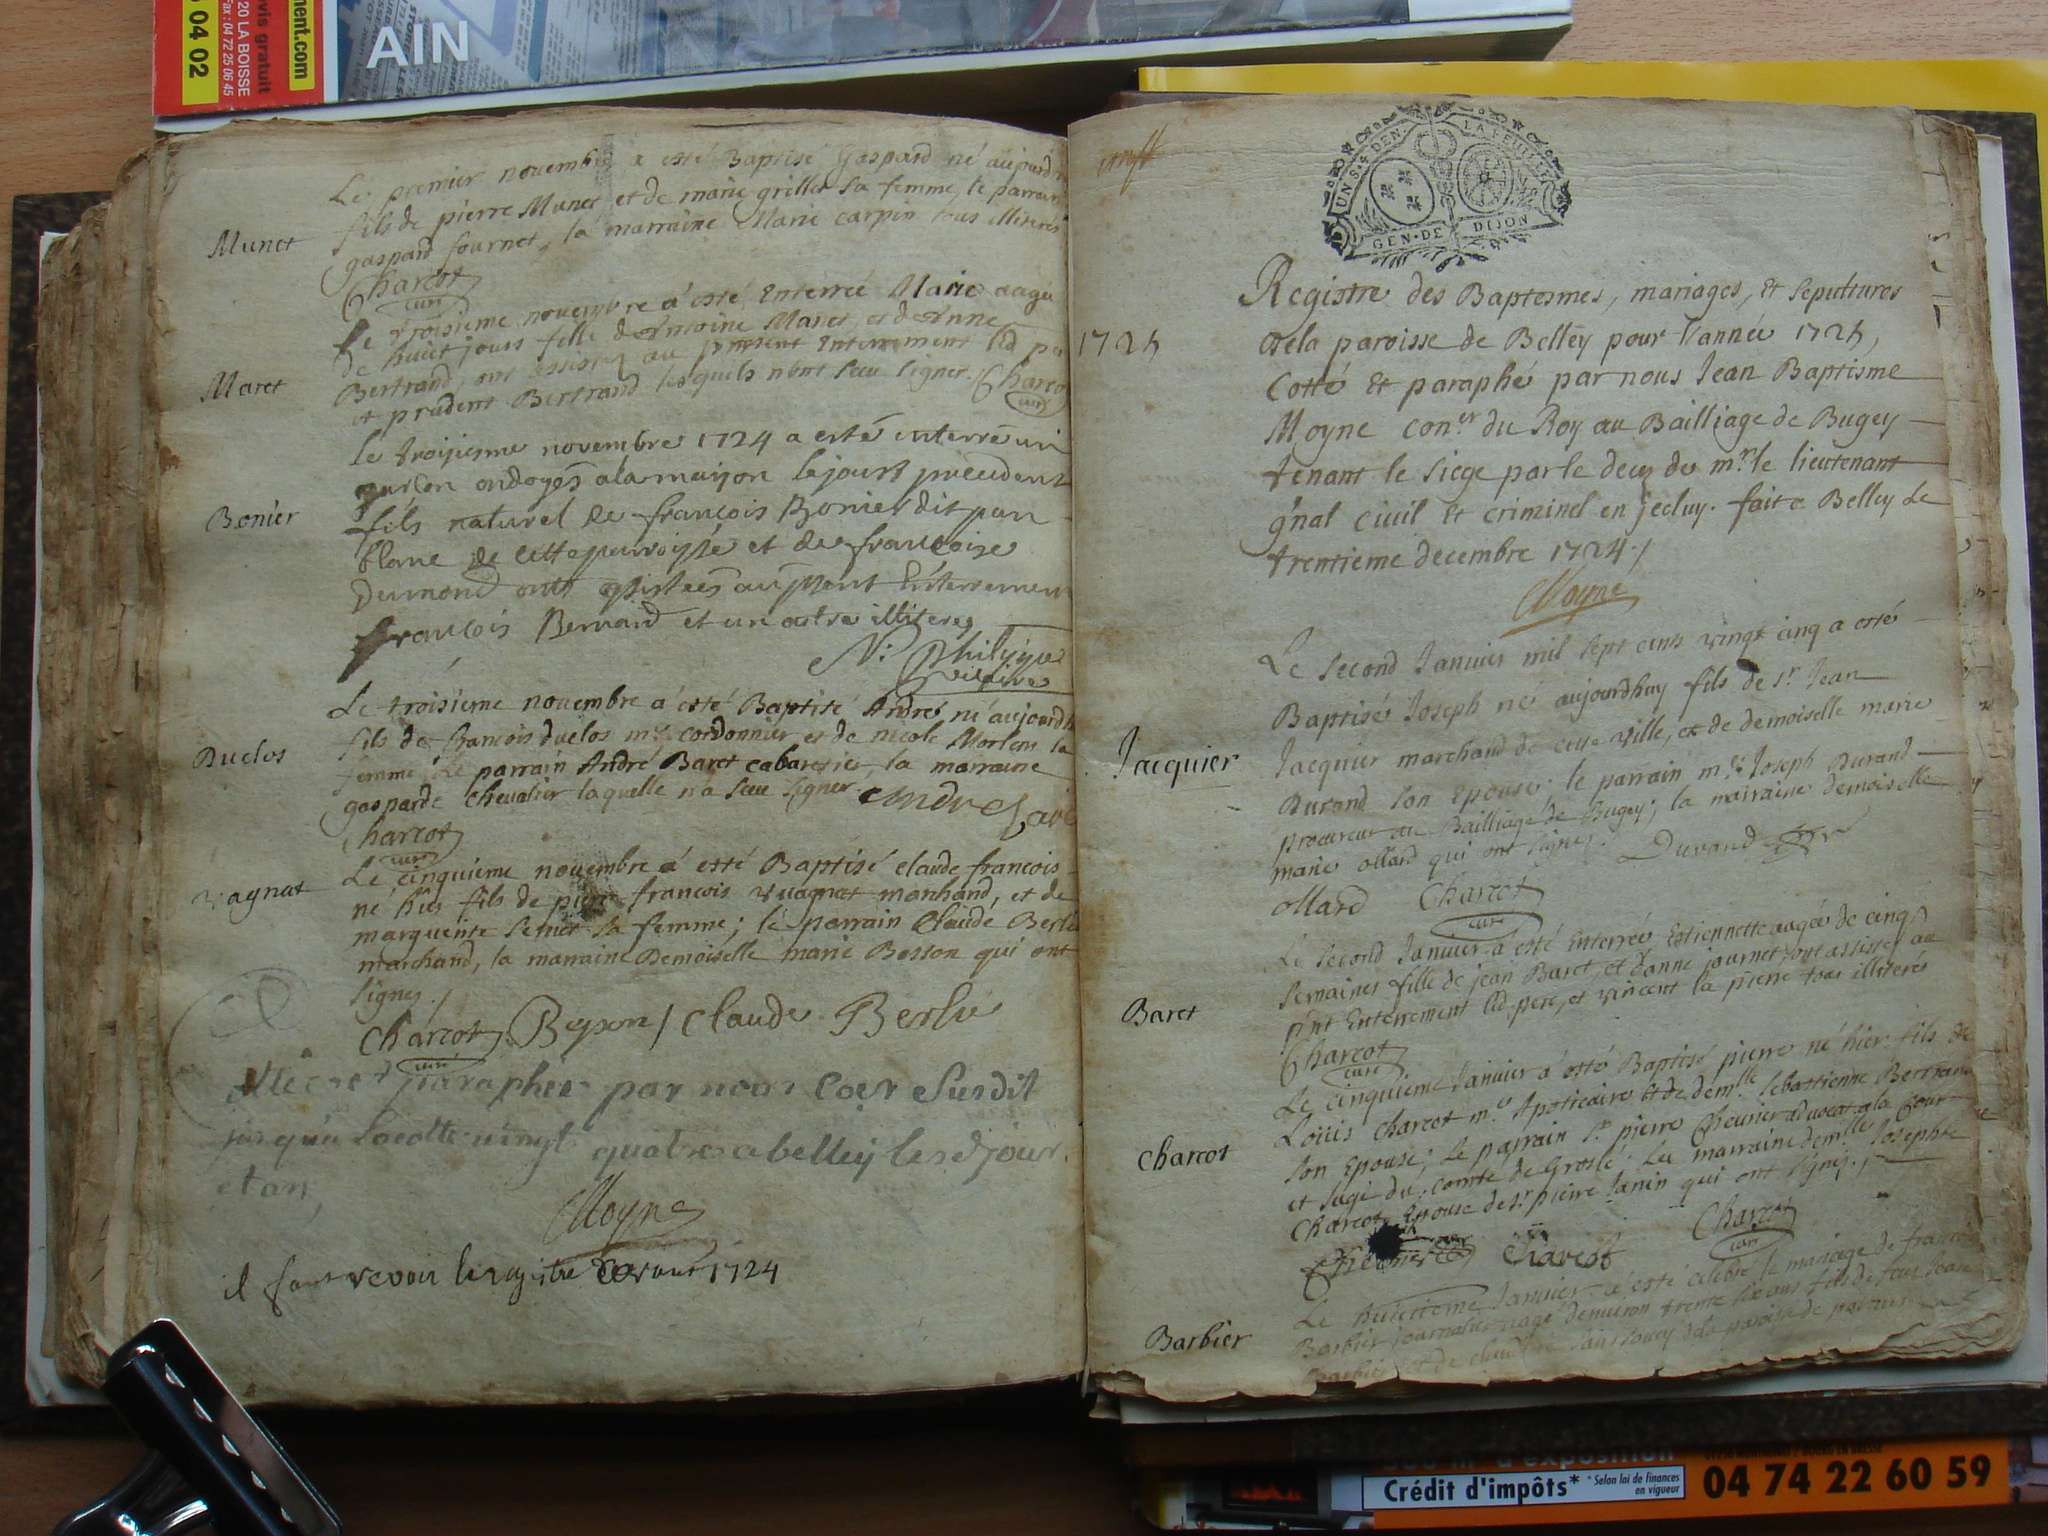 ment.com
vis gratuit
20 LA BOISSE
Fax : 04 72 25 06 45
04 02
AIN
Le premier novembre a esté Baptisé Gaspard né aujourd
fils de pierre Munet et de marie grillet sa femme, le parrain
gaspard fournet, la marraine Marie carpin tous illiterés
Munet
Charcot
curé
Le troisieme novembre a esté Enterrée Marie aagée
de huit jours fille d'Antoine Maret et d'Anne
Maret
Bertrand, ont assistez au present Enterrement led pe
et prudent Bertrand lesquels n'ont sceu signer. Charco
curé
le troisiesme novembre 1724 a esté enterré un
garson ondoyé a la maison le jour precedent
Bonier
fils naturel de françois Bonier dit pan
blanc de cette parroisse et de françoise
Dumond ont assistees au pnt Enterremen
francois Bernard et un autre illiteres
N: Philippe
vicaire
Le troisieme novembre a esté Baptisé André né aujourdh
Duclos
fils de francois duclos me cordonnier et de nicole Morlens sa
femme, Le parrain André Baret cabaretier, la marraine
gasparde chevalier laquelle n'a sceu signer. Andre Bare
Charcot
curé
Le cinquieme novembre a esté Baptisé claude francois
Vagnat
né hier fils de pierre francois vuagnat marchand, et de
marguerite sa femme; le parrain Claude Berli
marchand, la marraine Demoiselle marie Besson qui ont
signez./
Charcot Beyson / Claude Berlie
curé
paraphée par nous Coer Susdit
jusqu'a la cotte vingt quatre a belley les d jour
et an
Moyne
il faut revoir le registre davant 1724
UN S. 4 DEN.
LA FEUILLE
GEN. DE DIJON
Registre des Baptesmes, mariages, et sepultures
1725
de la paroisse de Belley pour l'année 1725,
Cotté et paraphé par nous Jean Baptisme
Moyne con.er du Roy au Bailliage de Bugey
tenant le siege par le decez de mr. le lieutenant
g'nal civil et criminel en jceluy. fait a Belley le
trentieme decembre 1724./
Moyne
Le second Janvier mil sept cents vingt cinq a esté
Baptisé Joseph né aujourdhuy fils de sr. Jean
Jacquier
Jacquier marchand de cette ville, et de demoiselle marie
Durand son Epouse; le parrain me. Joseph Durand
procureur au Bailliage de Bugey; la marraine demoiselle
marie ollard qui ont signez. Durand
ollard Charcot
curé
Le second Janvier a esté Enterrée Estiennette aagée de cinq
semaines fille de jean Baret, et d'anne journet, ont assistez au
Baret
pnt Enterrement led. pere, et vincent la pierre tous illiterés
Charcot
curé
Le cinquieme Janvier a esté Baptisé pierre né hier fils de
Louis Charcot me. Apoticaire et de demlle Sebastienne Bertrand
Charcot
son Epouse; Le parrain sr. pierre Chevrier advocat a la Cour
et juge du comté de Groslé; La marraine demlle Josephte
Charcot Epouse de sr. pierre Janin qui ont signez.
Chevrier Charcot Charcot
curé
Le huictieme Janvier a esté celebré le mariage de francois
Barbier
Barbier journalier aagé d'environ trente six ans fils de feu Jean
Crédit d'impôts* * Selon loi de finances
en vigueur
04 74 22 60 59